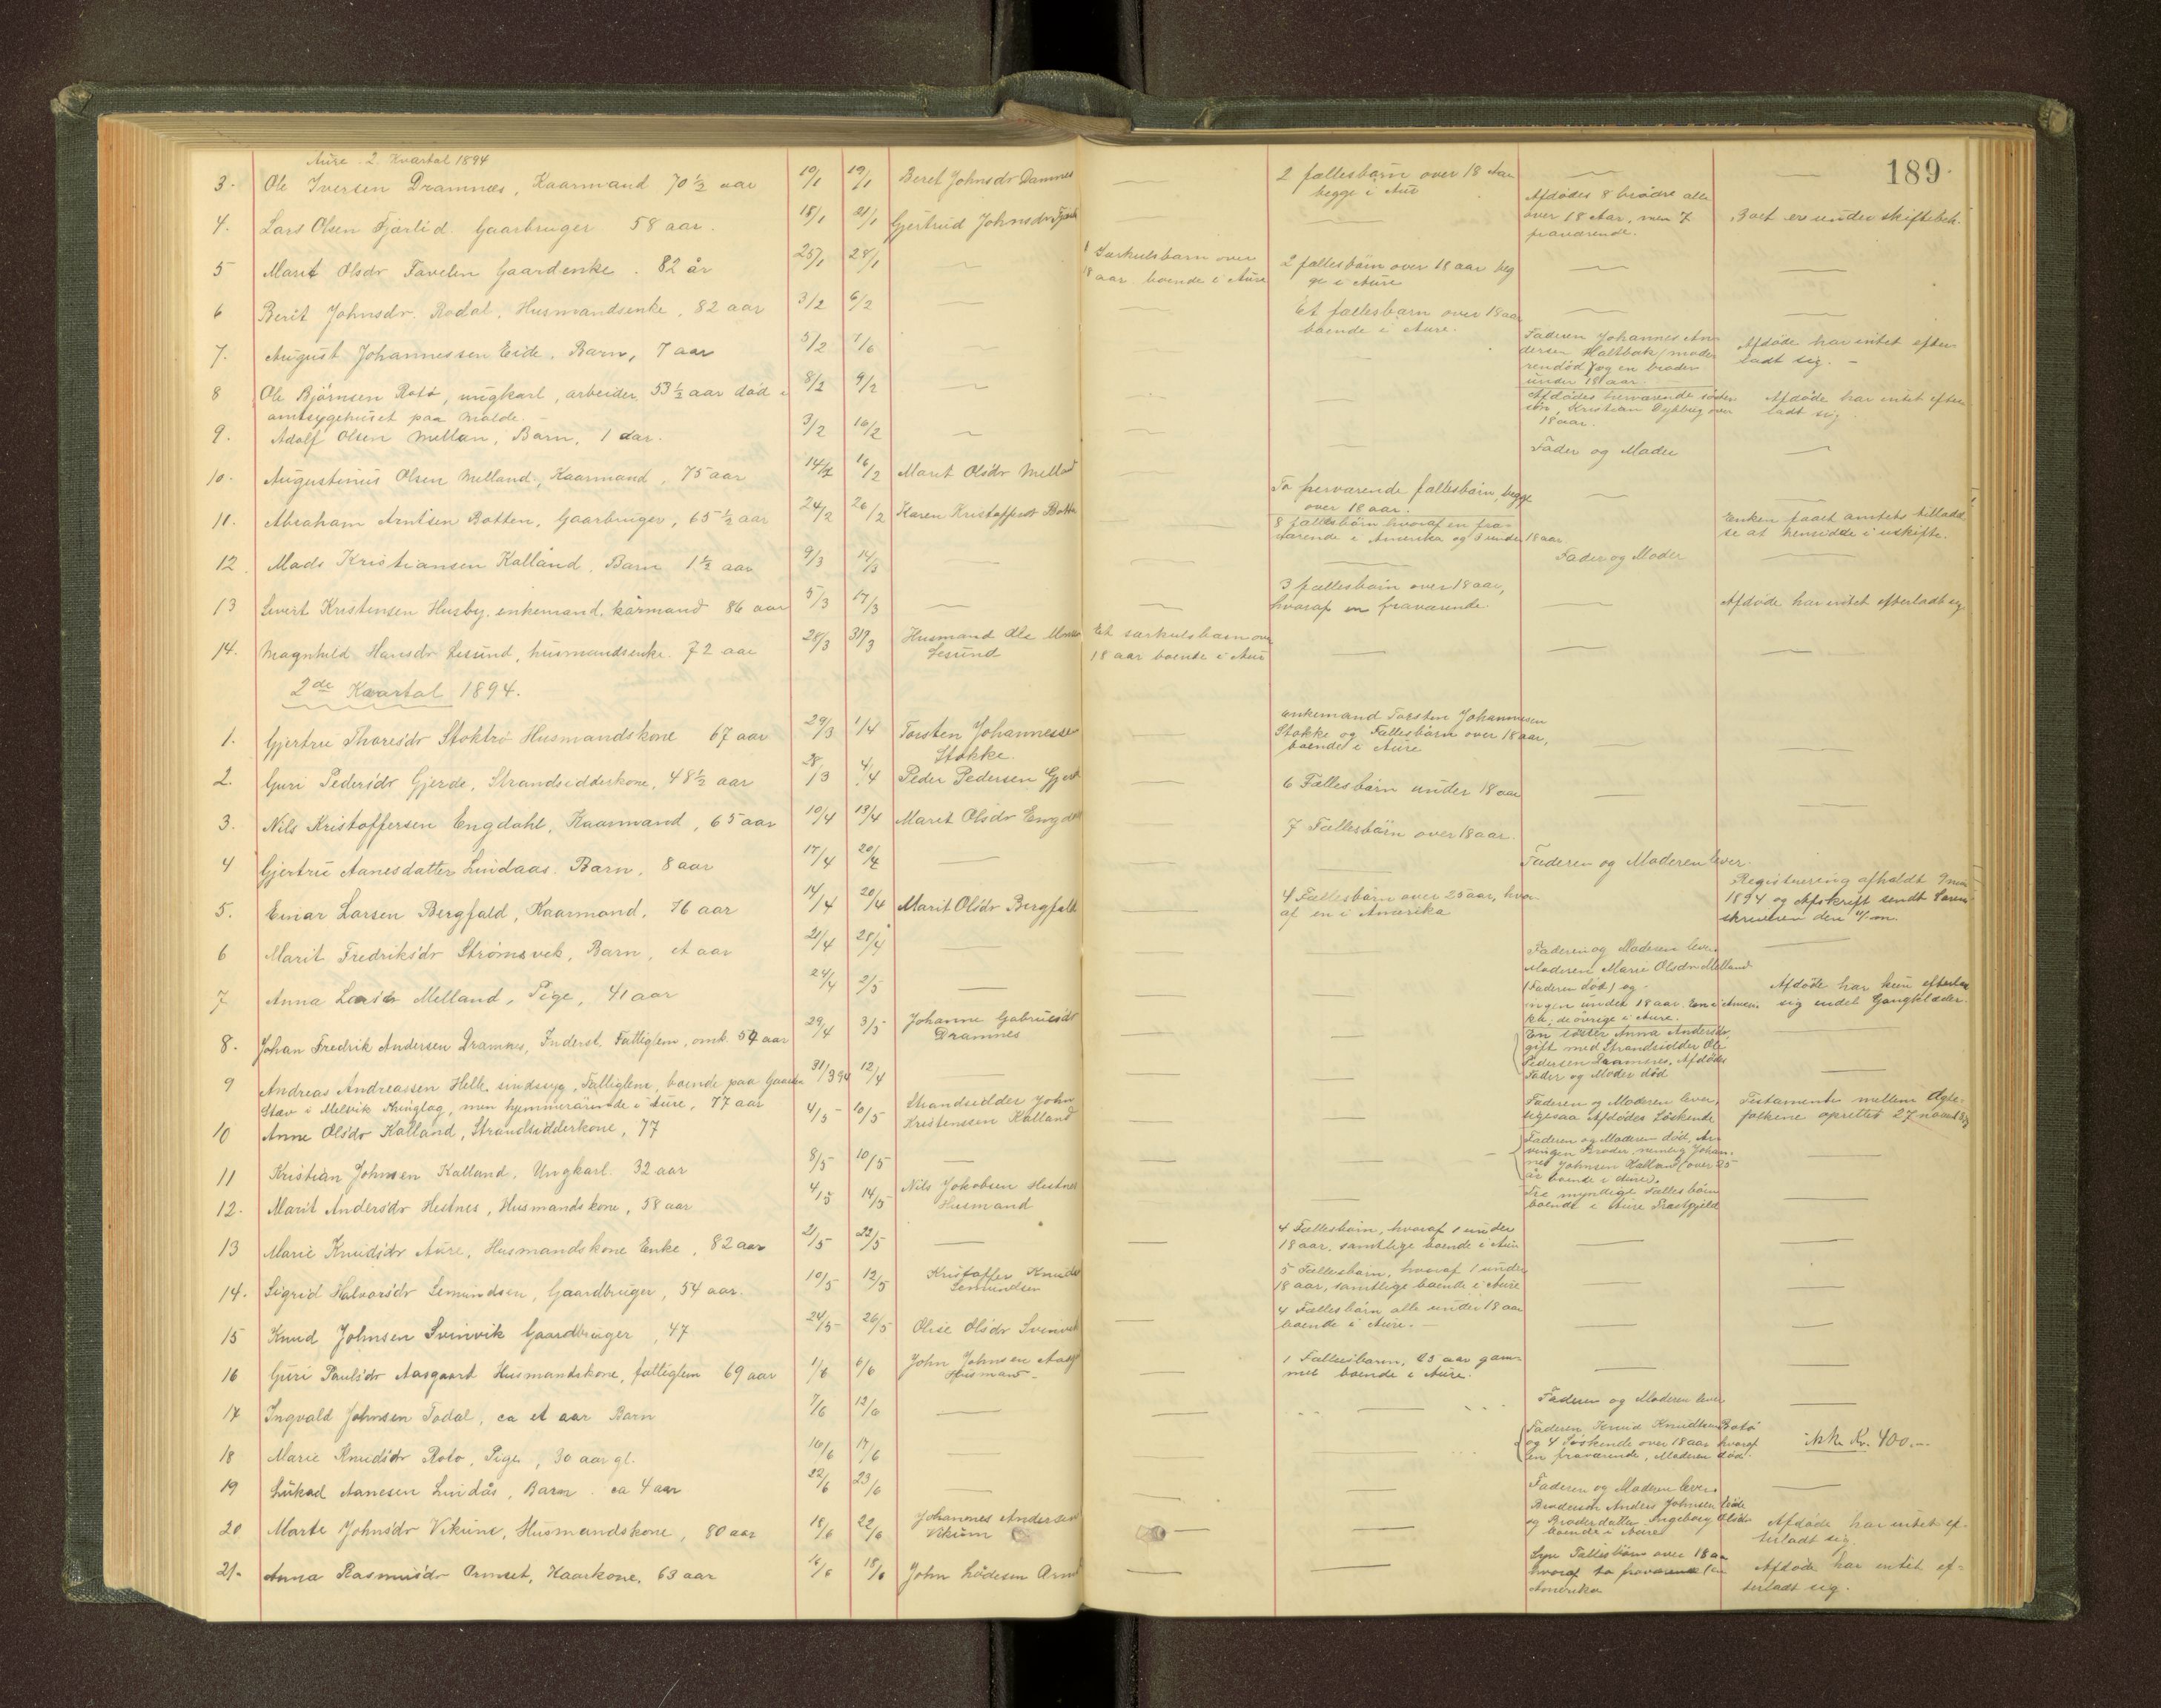 189.
Aure 2 Kvartal 1894
3. Ole Iversen Dramnæs, Kaarmand 70 1/2 aar 10/1 19/1 Beret Johnsdr Damnes — 2 fællesbarn over 18 Aar — —
begge i Aure
4. Lars Olsen Fjærlid. Gaarbruger 58 aar. 15/1 21/1 Gjertrud Johnsdr — — Afdødes 8 brødre alle Boet er under skiftebeh.
over 18 Aar, men 7
fraværende.
5 Marit Olsdr Favelen Gaardenke. 82 år 25/1 28/1 — 1 Særkulsbarn over 2 fællesbörn over 18 aar beg — —
18 aar boende i Aure ge i Aure
6 Berit Johnsdr. Rodal, Husmandsenke, 82 aar 3/2 6/2 — — Et fællesbarn over 18 aar — —
boende i Aure.
7. August Johannessen Eide, Barn, 7 aar 5/2 7/6 — — — Faderen Johannes An Afdøde har intet efter
dersen Haltbak (mode ladt sig. —
rendöd) og en broder
under 18 aar.
8 Ole Björnsen Rotö, ungkarl, arbeider, 53 1/2 aar död i 8/2 9/2 — — — Afdödes Afdøde har intet efter
amtsygehuset paa Molde. — sön, Kristian Dyhbug over ladt sig.
18 aar.
9. Adolf Olsen Mellan, Barn, 1 aar. 3/2 16/2 — — — Fader og Moder —
10. Augustinus Olsen Melland, Kaarmand, 75 aar 14/2 16/2 Marit Olsdr Melland — To herværende fællesbörn, begge — —
over 18 aar.
11. Abraham Arntsen Botten, Gaarbruger, 65 1/2 aar 24/2 26/2 Karen Kristoffersdr Botten — 8 fællesbörn hvoraf en fra- Enken faaet amtets tillade
værende i Amerika og 3 under 18 aar se at hensidde i uskifte.
12 Mads Kristiansen Kalland, Barn 1 1/2 aar 9/3 14/3 — — — Fader og Moder —
13 Sivert Kristensen Husby, enkemand, kårmand 86 aar 5/3 17/3 — — 3 fællesbörn over 18 aar, — Afdøde har intet efterladt sig
hvoraf en fraværende.
14. Magnhild Hansdr Lesund, husmandsenke. 72 aar 28/3 31/3 Husmand Ole Et særkulsbarn over — — —
Lesund 18 aar boende i Aure
2de Kvartal 1894.
1. Gjertru Thoresdr Stoktrö Husmandskone 67 aar 29/3 1/4 Torsten Johannessen — enkemand Torsten Johannesen — —
Stokke. Stokke og Fællesbörn over 18 aar,
boende i Aure
2. Guri Pedersdr Gjerde, Strandsidderkone, 48 1/2 aar 28/3 4/4 Peder Pedersen Gjerde — 6 Fællesbörn under 18 aar — —
3. Nils Kristoffersen Engdahl, Kaarmand, 65 aar 10/4 13/4 Marit Olsdr Engdahl — 7 Fællesbörn over 18 aar.
4 Gjertru Aanesdatter Lindaas. Barn, 8 aar 17/4 20/4 — — — Faderen og Moderen lever.
5. Einar Larsen Bergfald, Kaarmand, 76 aar 14/4 20/4 Marit Olsdr Bergfald — 4 Fællesbörn over 25 aar, hvor — Registrering afholdt 9
af en i Amerika 1894 og Afskrift sendt Soren-
skriveren den
6 Marit Fredriksdr Strömsvek, Barn, et aar 21/4 28/4 — — — Faderen og Moderen lever. —
7 Anna Larsdr Melland, Pige, 41 aar 24/4 2/5 — — — Moderen Marie Olsdr Melland Afdöde har kun efterladt
(Faderen död) og sig endel Gangklæder.
ingen under 18 aar. En i Ameri
ka, de övrige i Aure.
8. Johan Fredrik Andersen Dramnes, Inderst. Fattiglem, omt. 54 aar 29/4 3/5 Johanne Gabrielsdr — — En söster Anna Andersdr, —
Dramnes gift med Strandsidder Ole
Pedersen Dramnes, Afdödes
Fader og Moder död
9 Andreas Andreassen Helle sindsyg, Fattiglem, boende paa Gaarden 31/3 94 12/4 — — — —
Stav i Melvik thinglag, men hjemmehörende i Aure, 77 aar
10 Anne Olsdr Kalland, Strandsidderkone, 77 4/5 10/5 Strandsidder John — — Faderen og Moderen lever, Testamente mellem Ægte-
Kristenssen Kalland ligesaa Afdödes Söskende folkene oprettet 27
11 Kristian Johnsen Kalland, Ungkarl. 32 aar 8/5 10/5 — — — Faderen og Moderen död, Ar —
vingen Broder nemlig Johan-
nes Johnsen Kalland (over 25
år boende i Aure).
12. Marit Andersdr Hestnes, Husmandskone, 58 aar 4/5 14/5 Nils Jakobsen Hestnes — — Tre myndige Fællesbörn —
Husmand boende i Aure Præstgjeld
13 Marie Knudsdr Aure, Husmandskone Enke, 82 aar 21/5 22/5 — — 4 Fællesbörn, hvoraf 1 under — —
18 aar, samtlige boende i Aure
14. Sigrid Halvorsdr Semundsen, Gaardbruger, 54 aar. 10/5 12/5 Kristoffer Knudsen — 5 Fællesbörn, hvoraf 1 under — —
Semundsen 18 aar, samtlige boende i Aure
15 Knud Johnsen Svinvik Gaardbruger, 47 24/5 26/5 Olise Olsdr Svinvik — 4 Fællesbörn alle under 18 aar — —
boende i Aure. —
16 Guri Paulsdr Aasgaard Husmandskone, fattiglem 69 aar 1/6 6/6 John Johnsen Aasgd — 1 Fællesbarn, 23 aar gam- — —
Husmand — met boende i Aure.
17 Ingvald Johnsen Todal, ca et aar Barn 7/6 12/6 — — — Faderen og Moderen lever
18 Marie Knudsdr Roto, Pige, 30 aar gl. 16/6 17/6 — — — Faderen Knud Knudtsen Rotö Kr. 400.—
og 4 Söskende over 18 aar hvoraf
en fraværende, Moderen död
19 Lukad Aanesen Lindås, Barn. ca 4 aar 22/6 23/6 — — — Faderen og Moderen lever. —
20 Marte Johnsdr Vikune, Husmandskone, 80 aar 18/6 22/6 Johannes Andersen — — Brodersön Anders Johnsen Eide Afdøde har intet ef-
Vikum og Broderdatter Ingeborg Olsdr terladt sig.
boende i Aure
21. Anna Rasmusdr Ormset, Kaarkone, 63 aar 16/6 18/6 John Lödesen — — Syv Fællesbörn over 18 aar Afdøde har intet ef-
hvoraf to fraværende i terladt sig.
Amerika